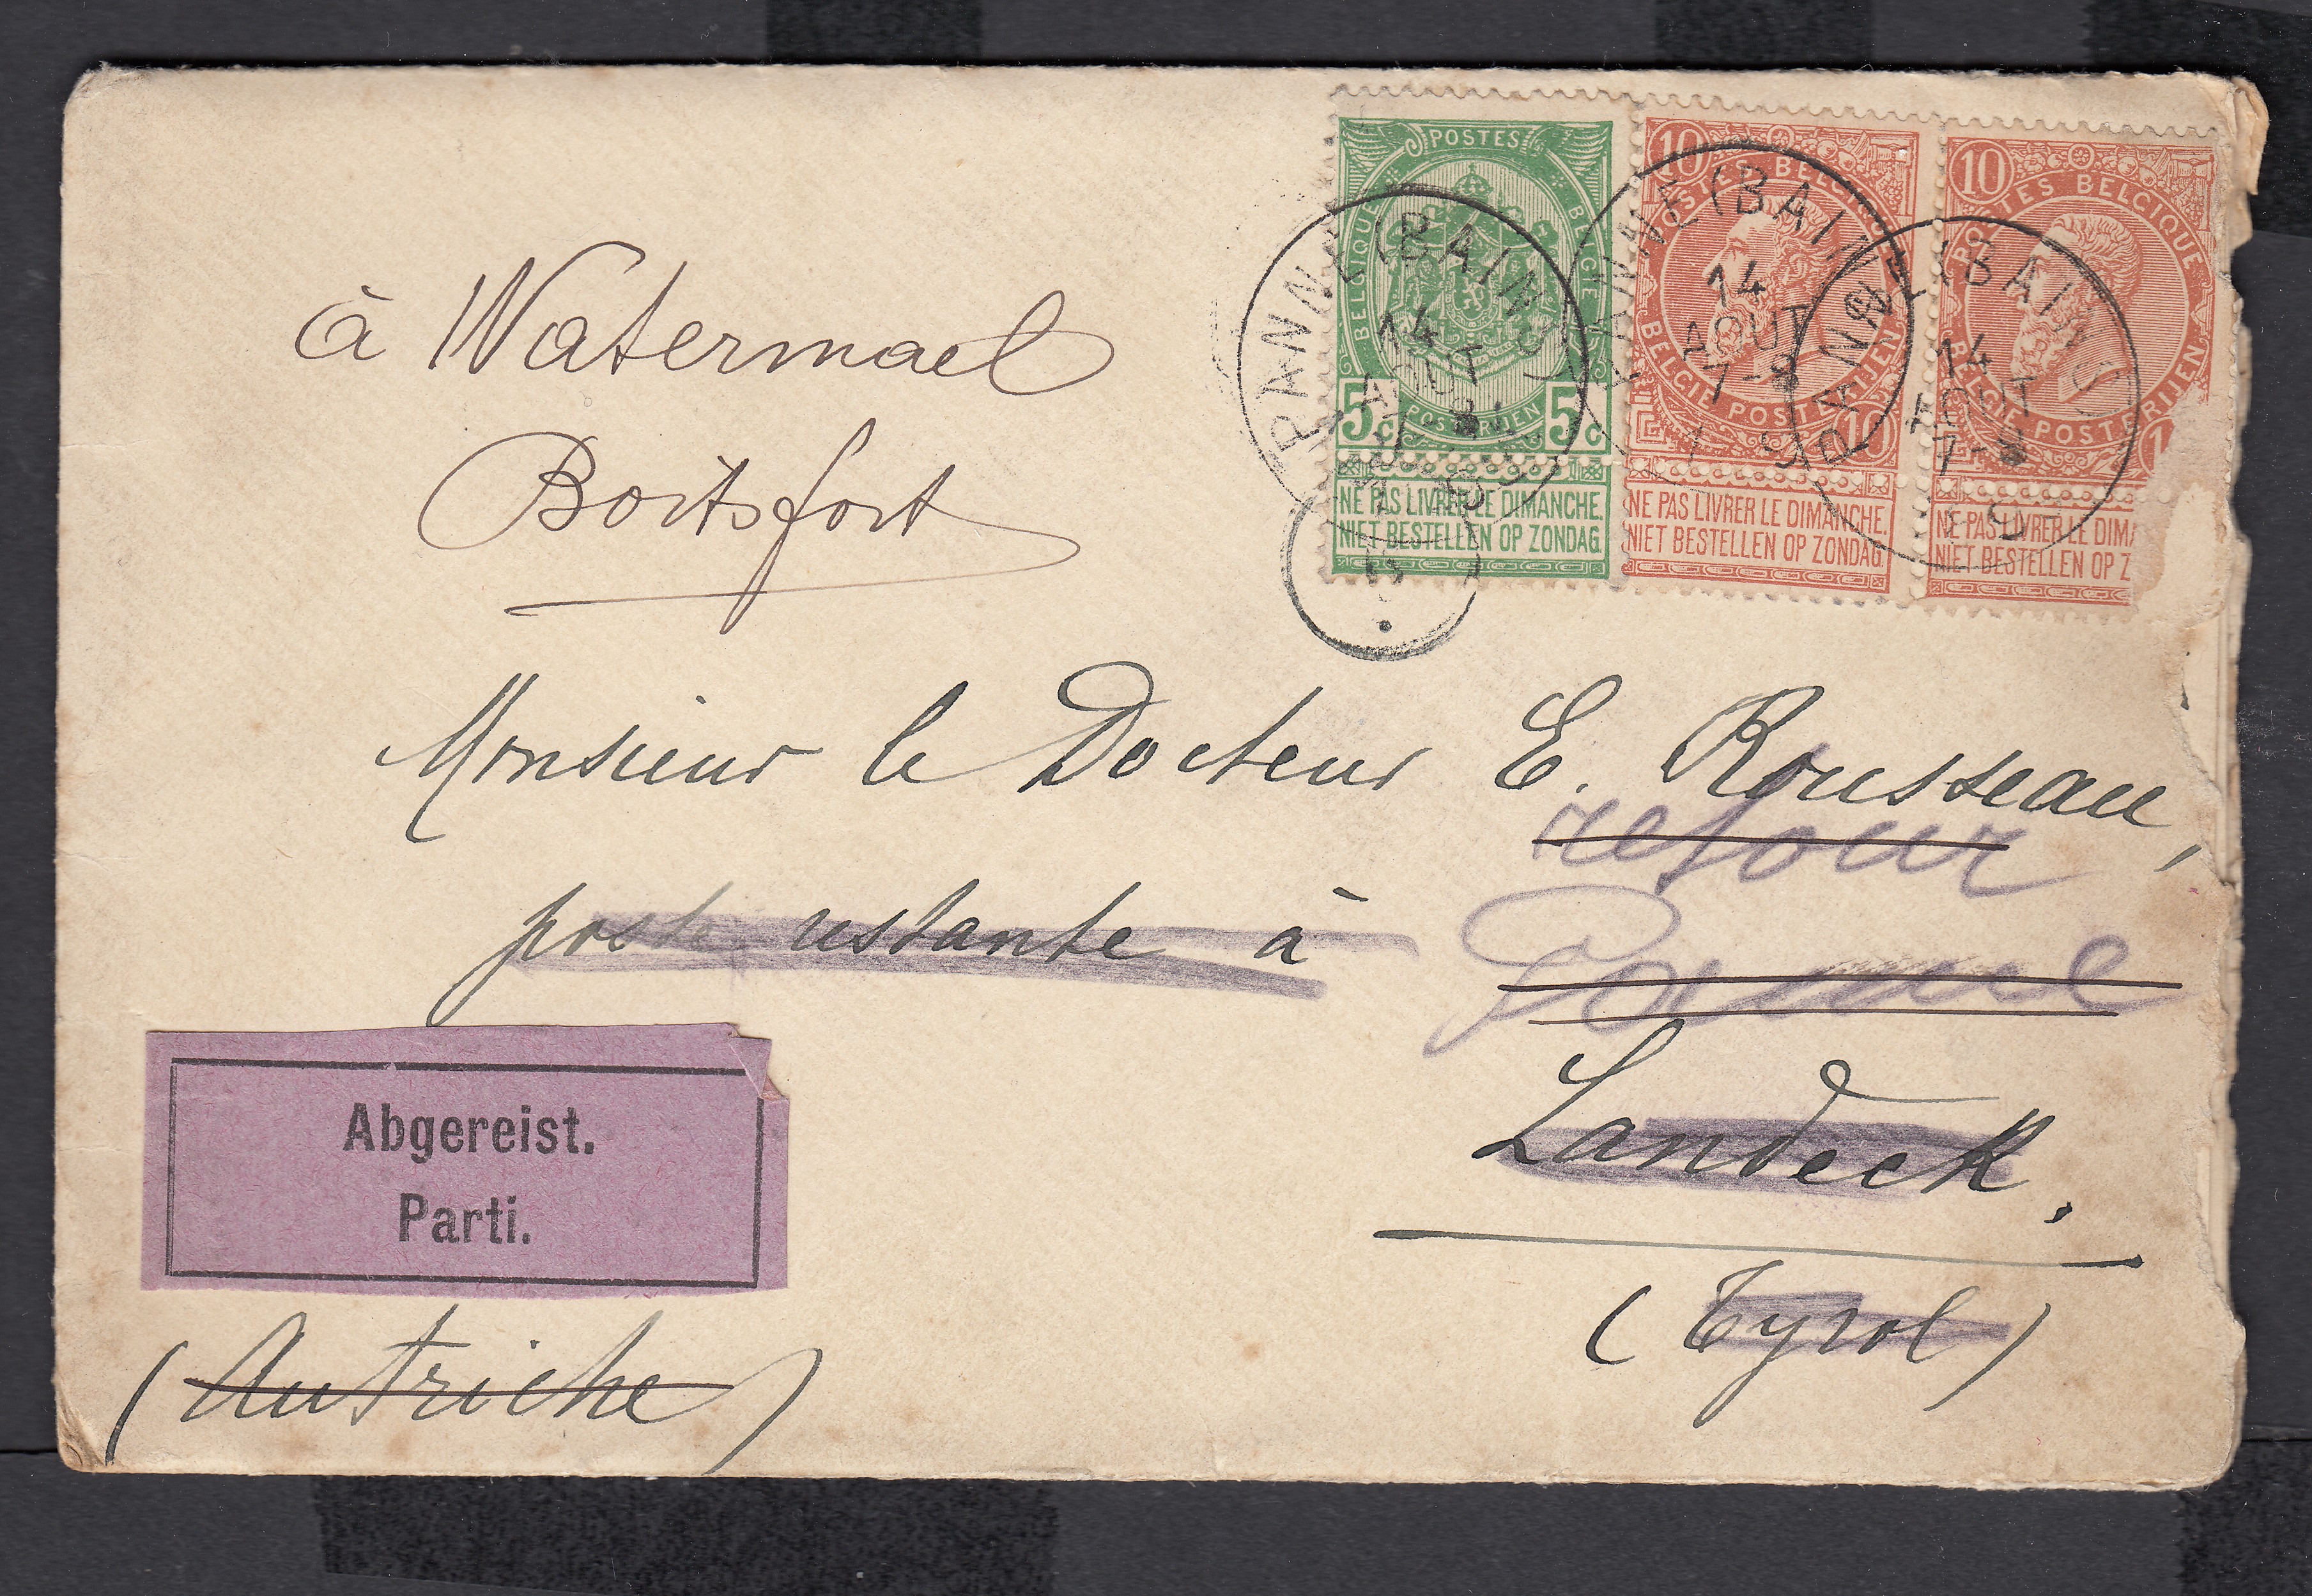 POSTES
BELGIQUE
BELGIË
5c
5c
POSTERIJEN
NE PAS LIVRER LE DIMANCHE.
NIET BESTELLEN OP ZONDAG.
10
POSTES BELGIQUE
BELGIE POSTERIJEN
10
NE PAS LIVRER LE DIMANCHE.
NIET BESTELLEN OP ZONDAG.
10
POSTES BELGIQUE
BELGIE POSTERIJEN
NE PAS LIVRER LE DIM
NIET BESTELLEN OP Z
PANNE (BAINS)
14
AOUT
PANNE (BAINS)
14
AOUT
7-8
PANNE (BAINS)
14
AOUT
7-8
à Watermael
Boitsfort
Monsieur le Docteur E. Rousseau,
retour
poste restante à
Landeck.
(Tyrol)
Abgereist.
Parti.
(Autriche)